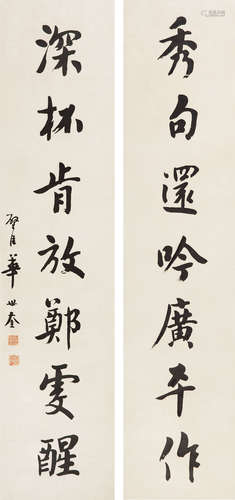 秀句還吟廣平作
深杯肯放鄭虔醒
華世奎